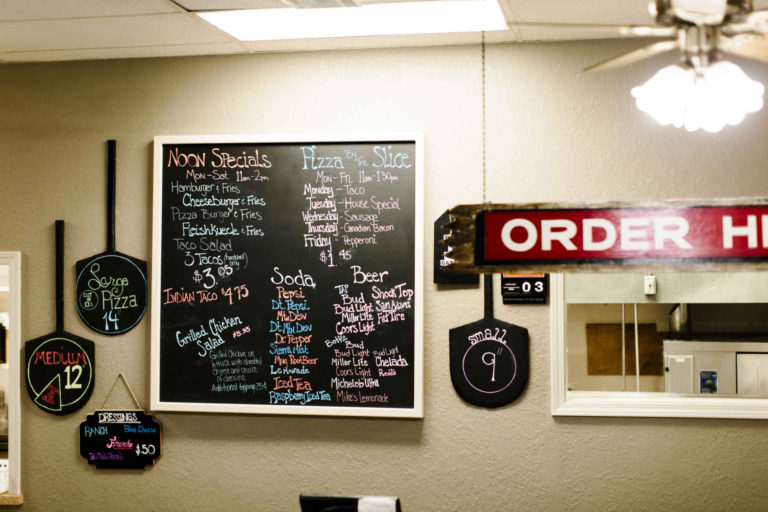 NOON SPECIALS
MON-SAT. 11am-2pm
Hamburger & Fries
Cheeseburger & Fries
Pizza Burger & Fries
Fleishkuekle & Fries
Taco Salad
3 Tacos
$3.05
INDIAN TACO $4.75
Grilled Chicken
Salad
Grilled Chicken on
lettuce with shredded
cheese and choice
of dressing
Additional topping 25¢
Pizza By The Slice
MON-FRI. 11am-1:30pm
Monday - Taco
Tuesday - House Special
Wednesday - Sausage
Thursday - Canadian Bacon
Friday - Pepperoni
$1.45
Soda
Pepsi
Dt. Pepsi
Mtn Dew
Dt. Mtn Dew
Dr. Pepper
Sierra Mist
Mug Root Beer
Lemonade
Iced Tea
Raspberry Iced Tea
Beer
Tap
Bud
Bud Light
Miller Lite
Coors Light
Shock Top
Sam Adams
Fat Tire
Bottle
Bud
Bud Light
Miller Lite
Coors Light
Michelob Ultra
Mike's Lemonade
Bud Light
Chelada
Large
Pizza
14
MEDIUM
12
DRESSINGS
RANCH
Blue Cheese
French
$.50
ORDER HE
03
Small
9"